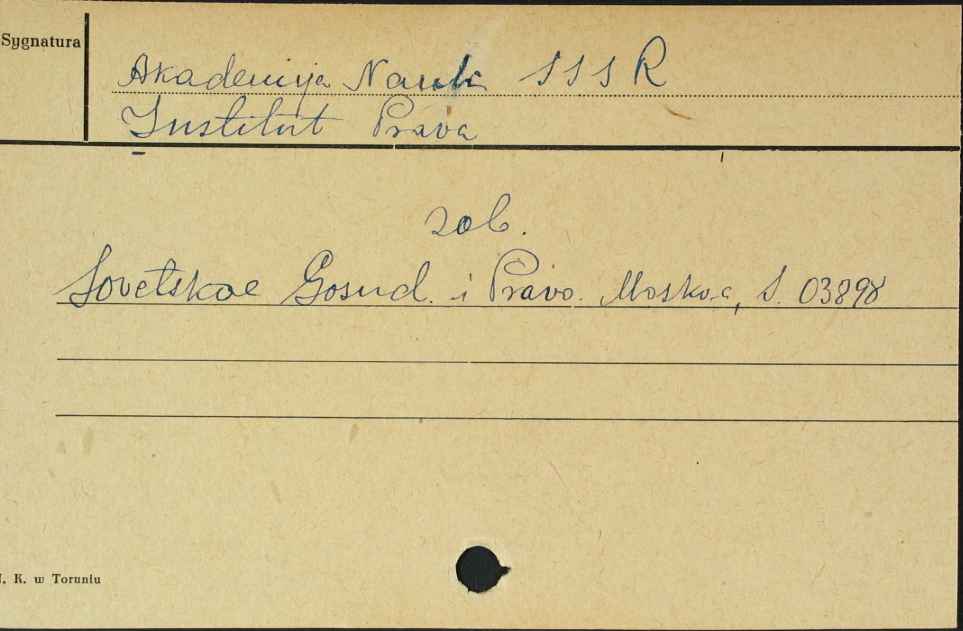 Sygnatura
Akademija Nauk SSSR
Institut Prava
zob.
Sovetskoe Gosud. i Pravo. Moskva, S. 03898
K. w Toruniu